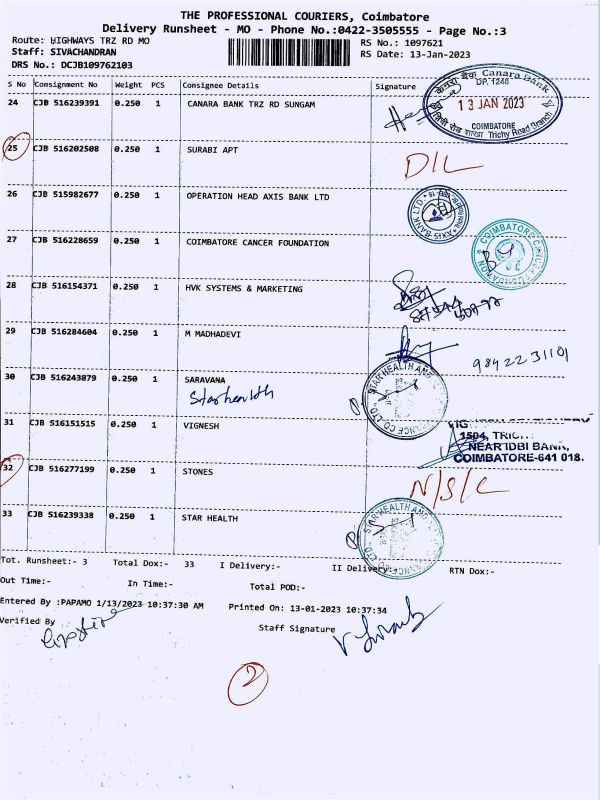 THE PROFESSIONAL COURIERS, Coimbatore
Delivery Runsheet - MO - Phone No.:0422-3505555 - Page No.:3
Route: HIGHWAYS TRZ RD MO RS No.: 1097621
Staff: SIVACHANDRAN RS Date: 13-Jan-2023
DRS No.: DCJB109762103
S No Consignment No Weight PCS Consignee Details Signature
24 CJB 516239391 0.250 1 CANARA BANK TRZ RD SUNGAM
केनरा बैंक Canara Bank
DP. 1246
13 JAN 2023
COIMBATORE
Trichy Road Branch
25 CJB 516202508 0.250 1 SURABI APT D/L
26 CJB 515982677 0.250 1 OPERATION HEAD AXIS BANK LTD
AXIS BANK LTD.
27 CJB 516228659 0.250 1 COIMBATORE CANCER FOUNDATION
COIMBATORE CANCER FOUNDATION
28 CJB 516154371 0.250 1 HVK SYSTEMS & MARKETING
29 CJB 516284604 0.250 1 M MADHADEVI
9842231101
30 CJB 516243879 0.250 1 SARAVANA
Star health
STAR HEALTH AND
CO LTD
31 CJB 516151515 0.250 1 VIGNESH
VIG
1504, TRIC
NEAR IDBI BANK,
COIMBATORE-641 018.
32 CJB 516277199 0.250 1 STONES N/S/L
33 CJB 516239338 0.250 1 STAR HEALTH
STAR HEALTH AND
Tot. Runsheet:- 3 Total Dox:- 33 I Delivery:- II Delivery:- RTN Dox:-
Out Time:- In Time:- Total POD:-
Entered By :PAPAMO 1/13/2023 10:37:30 AM Printed On: 13-01-2023 10:37:34
Verified By Staff Signature
2